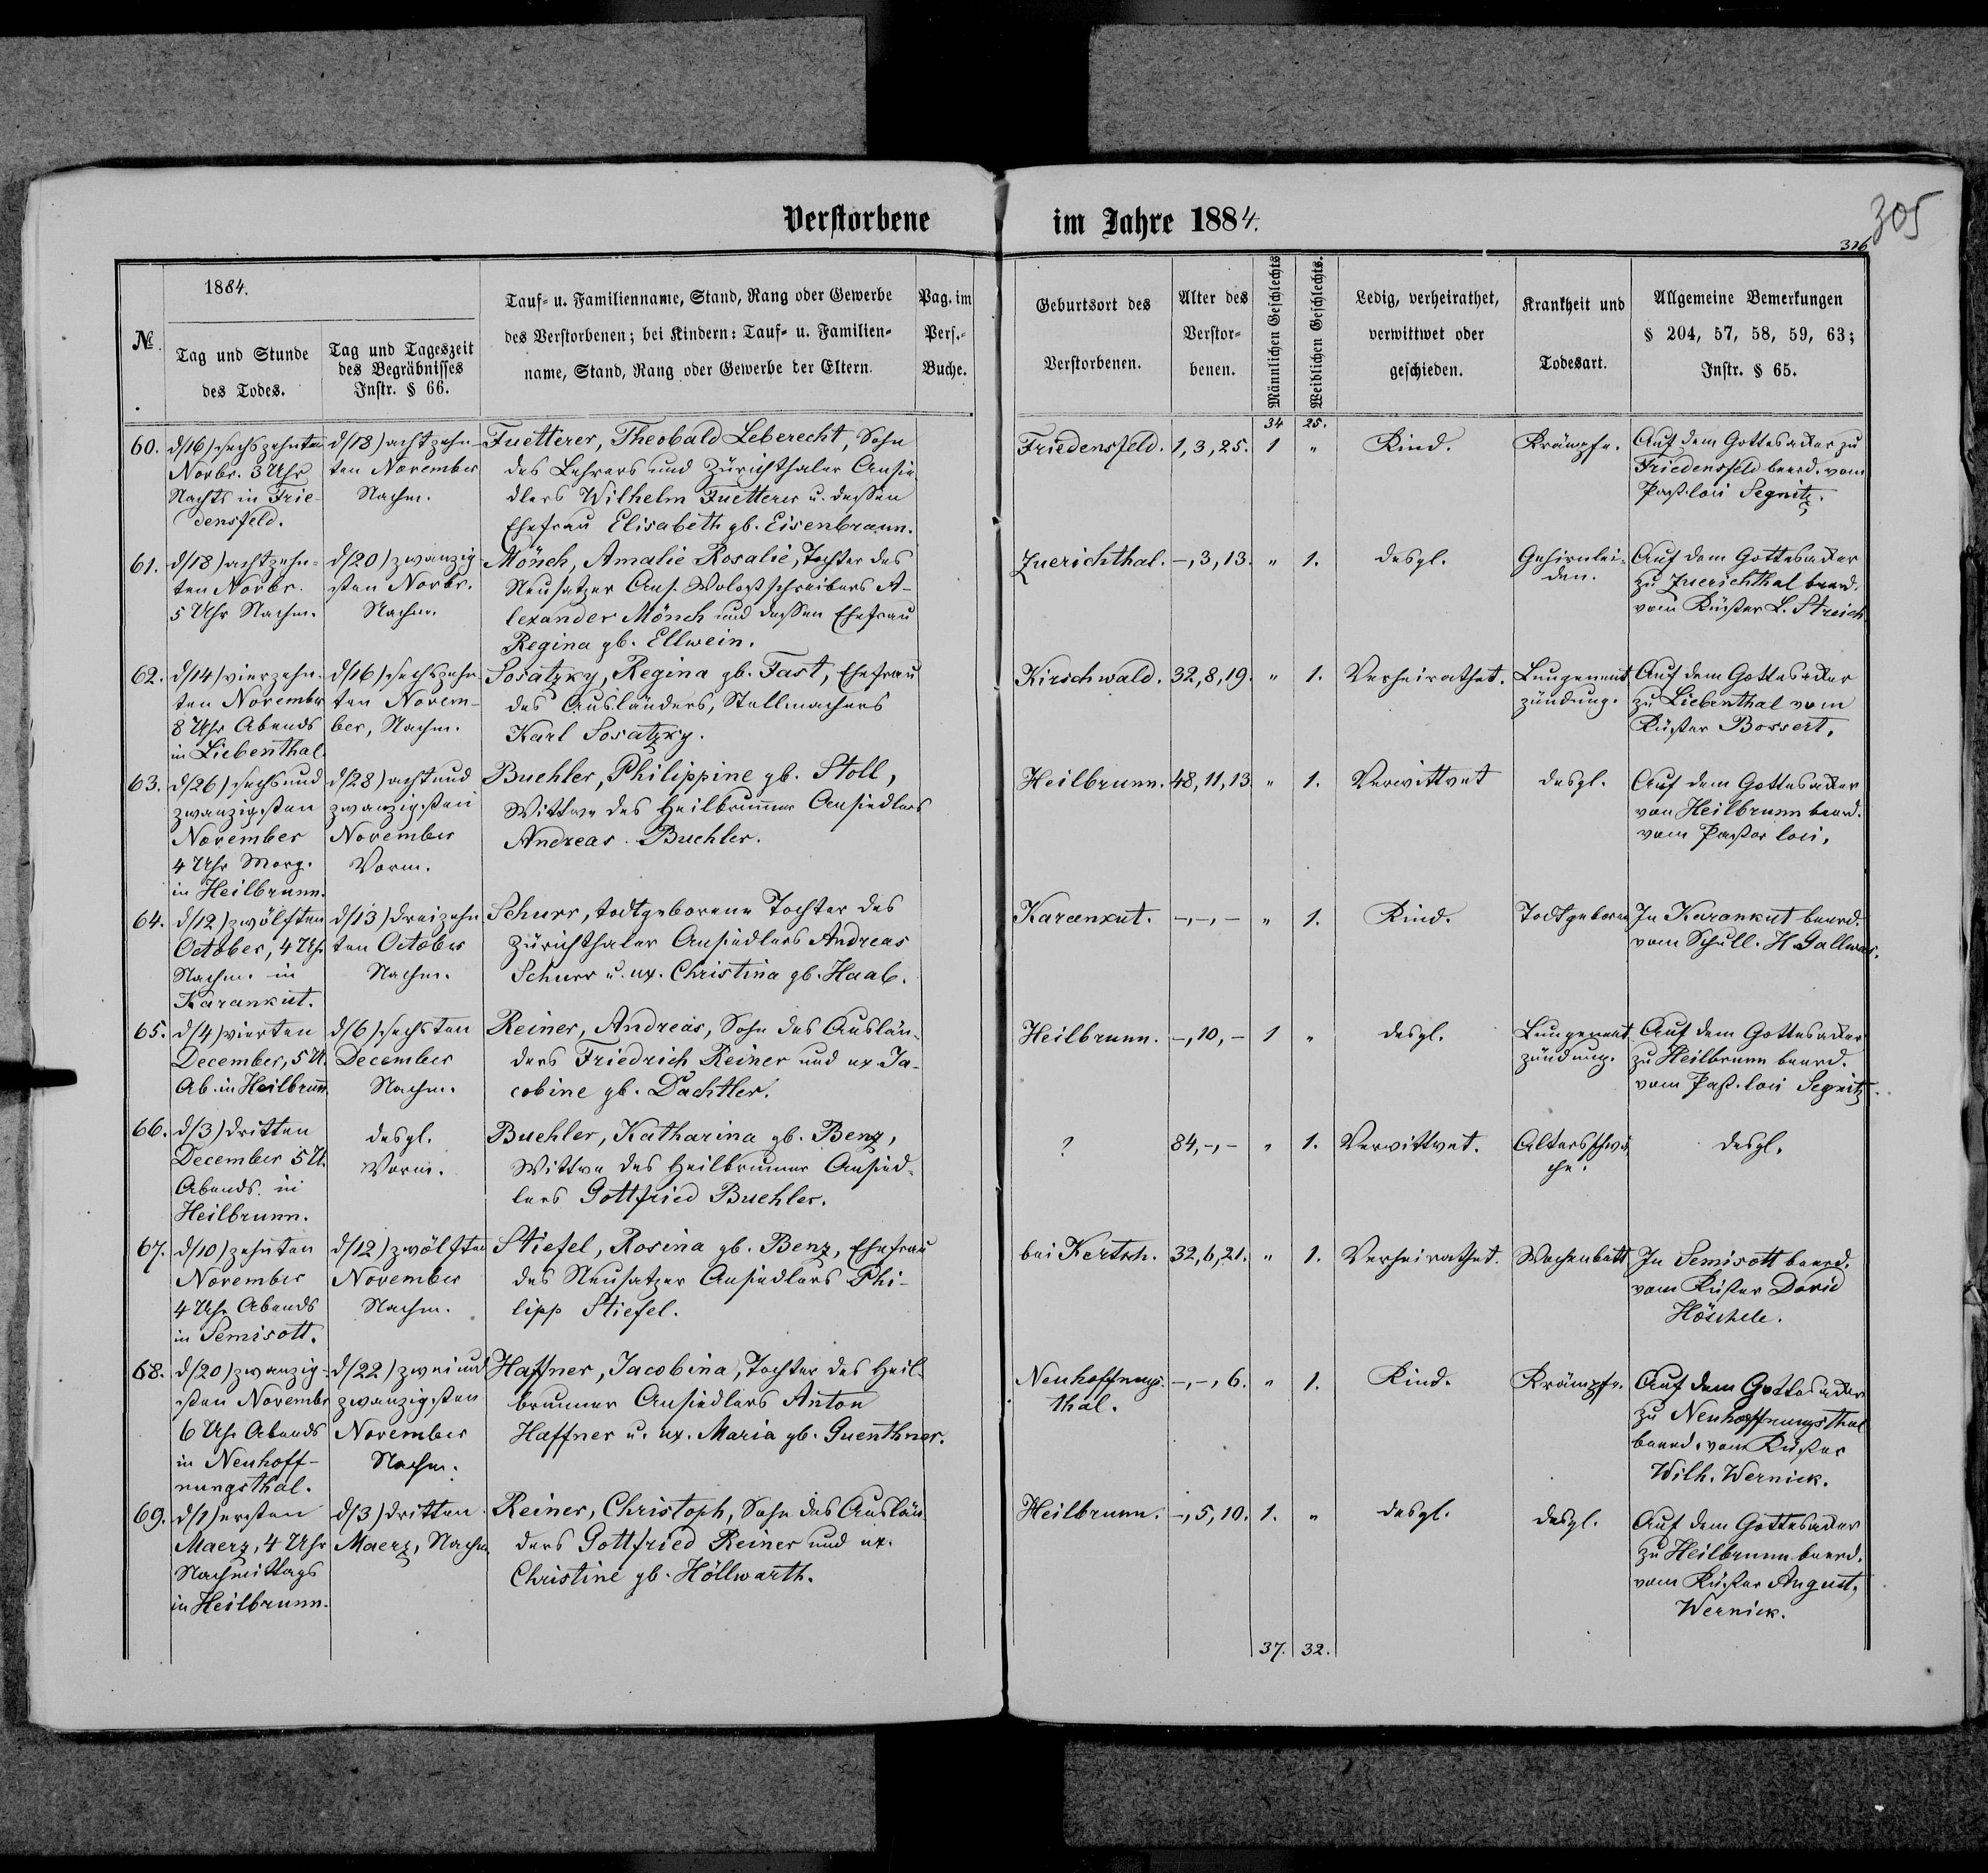 Verstorbene im Jahre 1884.
305
326
№
1884.
Tag und Stunde
des Todes.
Tag und Tageszeit
des Begräbnisses
Instr. § 66.
Tauf- u. Familienname, Stand, Rang oder Gewerbe
des Verstorbenen; bei Kindern: Tauf- u. Familien-
name, Stand, Rang oder Gewerbe der Eltern.
Pag. im
Pers.-
Buche.
Geburtsort des
Verstorbenen.
Alter des
Verstor-
benen.
Männlichen Geschlechts
Weiblichen Geschlechts.
Ledig, verheirathet,
verwittwet oder
geschieden.
Krankheit und
Todesart.
Allgemeine Bemerkungen
§ 204, 57, 58, 59, 63;
Instr. § 65.
34 25.
60.
d/16) sechszehnten
Novbr. 3 Uhr
Nachts in Frie-
densfeld.
d/18) achtzehn-
ten November
Nachm.
Fuetterer, Theobald Leberecht, Sohn
des Lehrers und Zürichthaler Ansie-
dlers Wilhelm Fuetterer u. dessen
Ehefrau Elisabeth gb. Eisenbraun.
Friedensfeld.
1, 3, 25.
1 "
Kind.
Krämpfe.
Auf dem Gottesacker zu
Friedensfeld beerd. vom
Past. loci Segnitz.
61.
d/18) achtzehn-
ten Novbr.
5 Uhr Nachm.
d/20) zwanzig-
sten Novbr.
Nachm.
Mönch, Amalie Rosalie, Tochter des
Neusatzer Ans. Wolostschreibers A-
lexander Mönch und dessen Ehefrau
Regina gb. Ellwein.
Zuerichthal.
-, 3, 13.
" 1.
desgl.
Gehirnlei-
den.
Auf dem Gottesacker
zu Zuerichthal beerd.
vom Küster L. Streich
62.
d/14) vierzehn-
ten November
8 Uhr Abends
in Liebenthal.
d/16) sechszehn-
ten Novem-
ber, Nachm.
Sosatzky, Regina gb. Fast, Ehefrau
des Ausländers, Stellmachers
Karl Sosatzky.
Kirschwald.
32, 8, 19.
" 1.
Verheirathet.
Lungenent
zündung.
Auf dem Gottesacker
zu Liebenthal vom
Küster Bossert.
63.
d/26) sechsund
zwanzigsten
November
4 Uhr Morg.
in Heilbrunn.
d/28) achtund
zwanzigsten
November
Vorm.
Buehler, Philippine gb. Stoll,
Wittwe des Heilbrunner Ansiedlers
Andreas Buehler.
Heilbrunn.
48, 11, 13.
" 1.
Verwittwet
desgl.
Auf dem Gottesacker
von Heilbrunn beerd.
vom Pastor loci.
64.
d/12) zwölften
October, 4 Uhr
Nachm. in
Karankut.
d/13) dreizehn
ten October
Nachm.
Schurr, todtgeborene Tochter des
Zürichthaler Ansiedlers Andreas
Schurr u. ux. Christina gb. Haab.
Karankut.
-, -, -
" 1.
Kind.
Todtgeboren
In Karankut beerd.
vom Schull. H. Gallwas.
65.
d/4) vierten
December, 5 U.
Ab. in Heilbrunn.
d/6) sechsten
December
Nachm.
Reiner, Andreas, Sohn des Auslän-
ders Friedrich Reiner und ux Ja-
cobine gb. Dachtler.
Heilbrunn.
-, 10, -
1 "
desgl.
Lungenent
zündung.
Auf dem Gottesacker
zu Heilbrunn beerd.
vom Past. loci Segnitz.
66.
d/3) dritten
December 5 U.
Abends in
Heilbrunn.
desgl.
Vorm.
Buehler, Katharina gb. Benz,
Wittwe des Heilbrunner Ansied-
lers Gottfried Buehler.
?
84, -, -
" 1.
Verwittwet.
Altersschwä
che.
desgl.
67.
d/10) zehnten
November
4 Uhr Abends
in Semisott.
d/12) zwölften
November
Nachm.
Stiefel, Rosina gb. Benz, Ehefrau
des Neusatzer Ansiedlers Phi-
lipp Stiefel.
bei Kertsch.
32, 6, 21.
" 1.
Verheirathet.
Wochenbett
In Semisott beerd.
vom Küster David
Höschele.
68.
d/20) zwanzig-
sten Novembr
6 Uhr Abends
in Neuhoff-
nungsthal.
d/22) zweiund
zwanzigsten
November
Nachm.
Haffner, Jacobina, Tochter des Heil-
brunner Ansiedlers Anton
Haffner u. ux. Maria gb. Guenthner.
Neuhoffnungs-
thal.
-, -, 6.
" 1.
Kind.
Krämpfe.
Auf dem Gottesacker
zu Neuhoffnungsthal
beerd. vom Küster
Wilh. Wernick.
69.
d/1) ersten
Maerz, 4 Uhr
Nachmittags
in Heilbrunn.
d/3) dritten
Maerz, Nachm
Reiner, Christoph, Sohn des Auslän-
ders Gottfried Reiner und ux.
Christine gb. Höllwarth.
Heilbrunn.
-, 5, 10.
1. "
desgl.
desgl.
Auf dem Gottesacker
zu Heilbrunn beerd.
vom Küster August
Wernick.
37. 32.